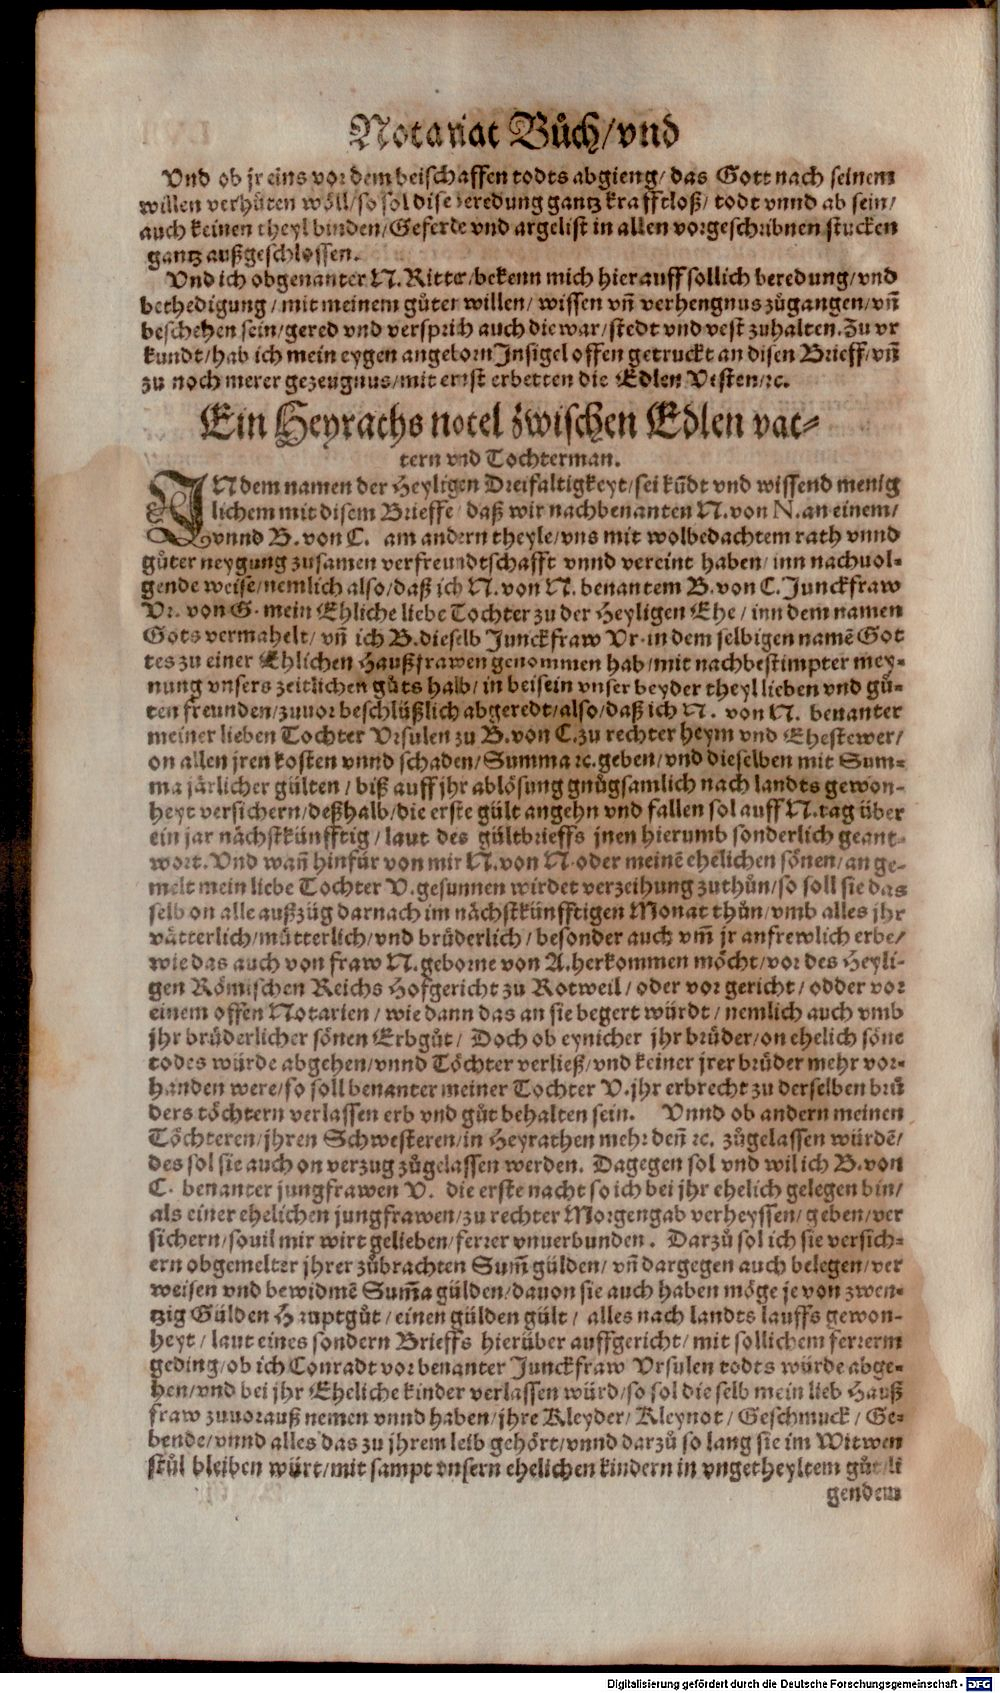 Notariat Bůch/vnd
Vnd ob jr eins vor dem beischaffen todts abgieng/ das Gott nach seinem
willen verhůten wöll/ so sol dise beredung gantz krafftloß/ todt vnnd ab sein/
auch keinen theyl binden/ Geferde vnd argelist in allen vorgeschribnen stucken
gantz außgeschlossen.
Vnd ich obgenanter N. Ritter/ bekenn mich hierauff sollich beredung/ vnd
bethedigung/ mit meinem gůten willen/ wissen vñ verhengnus zůgangen/ vñ
beschehen sein/ gered vnd versprich auch die war/ stedt vnd vest zuhalten. Zu vr
kundt/ hab ich mein eygen angeborn Insigel offen getruckt an disen Brieff/ vñ
zu noch merer gezeugnus/ mit ernst erbetten die Edlen Vesten/ ꝛc.
Ein Heyrathsnotel zwischen Edlen vat=
tern vnd Tochterman.
IN dem namen der Heyligen Dreifaltigkeyt/ sei kůdt vnd wissend menig
lichem mit disem Brieffe/ daß wir nachbenanten N. von N. an einem/
vnnd B. von C. am andern theyle/ vns mit wolbedachtem rath vnnd
gůter neygung zusamen verfreundtschafft vnnd vereint haben/ inn nachuol=
gende weise/ nemlich also/ daß ich N. von N. benantem B. von C. Junckfraw
Vr. von G. mein Ehliche liebe Tochter zu der Heyligen Ehe/ inn dem namen
Gots vermahelt/ vñ ich B. dieselb Junckfraw Vr. in dem selbigen namẽ Got
tes zu einer Ehlichen Haußfrawen genommen hab/ mit nachbestimpter mey=
nung vnsers zeitlichen gůts halb/ in beisein vnser beyder theyl lieben vnd gů=
ten freunden/ zuuor beschlüßlich abgeredt/ also/ daß ich N. von N. benanter
meiner lieben Tochter Vrsulen zu B. von C. zu rechter heym vnd Ehestewer/
on allen jren kosten vnnd schaden/ Summa ꝛc. geben/ vnd dieselben mit Sum=
ma järlicher gülten/ biß auff jhr ablösung gnůgsamlich nach landts gewon=
heyt versichern/ deßhalb/ die erste gült angehn vnd fallen sol auff N. tag über
ein jar nächstkünfftig/ laut des gültbrieffs jnen hierumb sonderlich geant=
wort. Vnd wañ hinfür von mir N. von N. oder meinẽ ehelichen sönen/ an ge=
melt mein liebe Tochter V. gesunnen wirdet verzeihung zuthůn/ so soll sie das
selb on alle außzüg darnach im nächstkünfftigen Monat thůn/ vmb alles jhr
vätterlich/ můtterlich/ vnd brüderlich/ besonder auch vm̃ jr anfrewlich erbe/
wie das auch von fraw N. geborne von A. herkommen möcht/ vor des Heyli=
gen Römischen Reichs Hofgericht zu Rotweil/ oder vor gericht/ odder vor
einem offen Notarien/ wie dann das an sie begert würdt/ nemlich auch vmb
jhr brüderlicher sönen Erbgůt/ Doch ob eynicher jhr brüder/ on ehelich söne
todes würde abgehen/ vnnd Töchter verließ/ vnd keiner jrer brüder mehr vor=
handen were/ so soll benanter meiner Tochter V. jhr erbrecht zu derselben brů
ders töchtern verlassen erb vnd gůt behalten sein. Vnnd ob andern meinen
Töchteren/ jhren Schwesteren/ in Heyrathen mehr deñ ꝛc. zůgelassen würdẽ/
des sol sie auch on verzug zůgelassen werden. Dagegen sol vnd wil ich B. von
C. benanter jungfrawen V. die erste nacht so ich bei jhr ehelich gelegen bin/
als einer ehelichen jungfrawen/ zu rechter Morgengab verheyssen/ geben/ ver
sichern/ souil mir wirt gelieben/ ferrer vnuerbunden. Darzů sol ich sie versich=
ern obgemelter jhrer zůbrachten Sum̃ gülden/ vñ dargegen auch belegen/ ver
weisen vnd bewidmẽ Sum̃a gülden/ dauon sie auch haben möge je von zwen=
tzig Gülden Hauptgůt/ einen gülden gült/ alles nach landts lauffs gewon=
heyt/ laut eines sondern Brieffs hierüber auffgericht/ mit sollichem ferrerm
geding/ ob ich Conradt vorbenanter Junckfraw Vrsulen todts würde abge=
hen/ vnd bei jhr Eheliche kinder verlassen würd/ so sol die selb mein lieb Hauß
fraw zuuorauß nemen vnnd haben/ jhre Kleyder/ Kleynot/ Geschmuck/ Ge=
bende/ vnnd alles das zu jhrem leib gehört/ vnnd darzů so lang sie im Witwen
stůl bleiben würt/ mit sampt vnsern ehelichen kindern in vngetheyltem gůt/ li
gendem
Digitalisierung gefördert durch die Deutsche Forschungsgemeinschaft - DFG